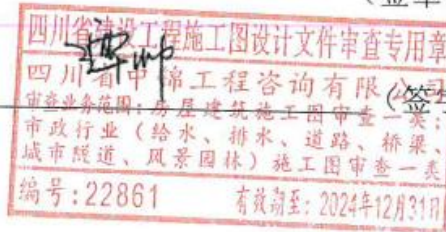 (签章
四川省建设工程施工图设计文件审查专用章
四川省中锦工程咨询有限
(签
审查业务范围:房屋建筑施工图审查一类、
市政行业(给水、排水、道路、桥梁、
城市隧道、风景园林)施工图审查一类
编号:22861 有效期至:2024年12月31日